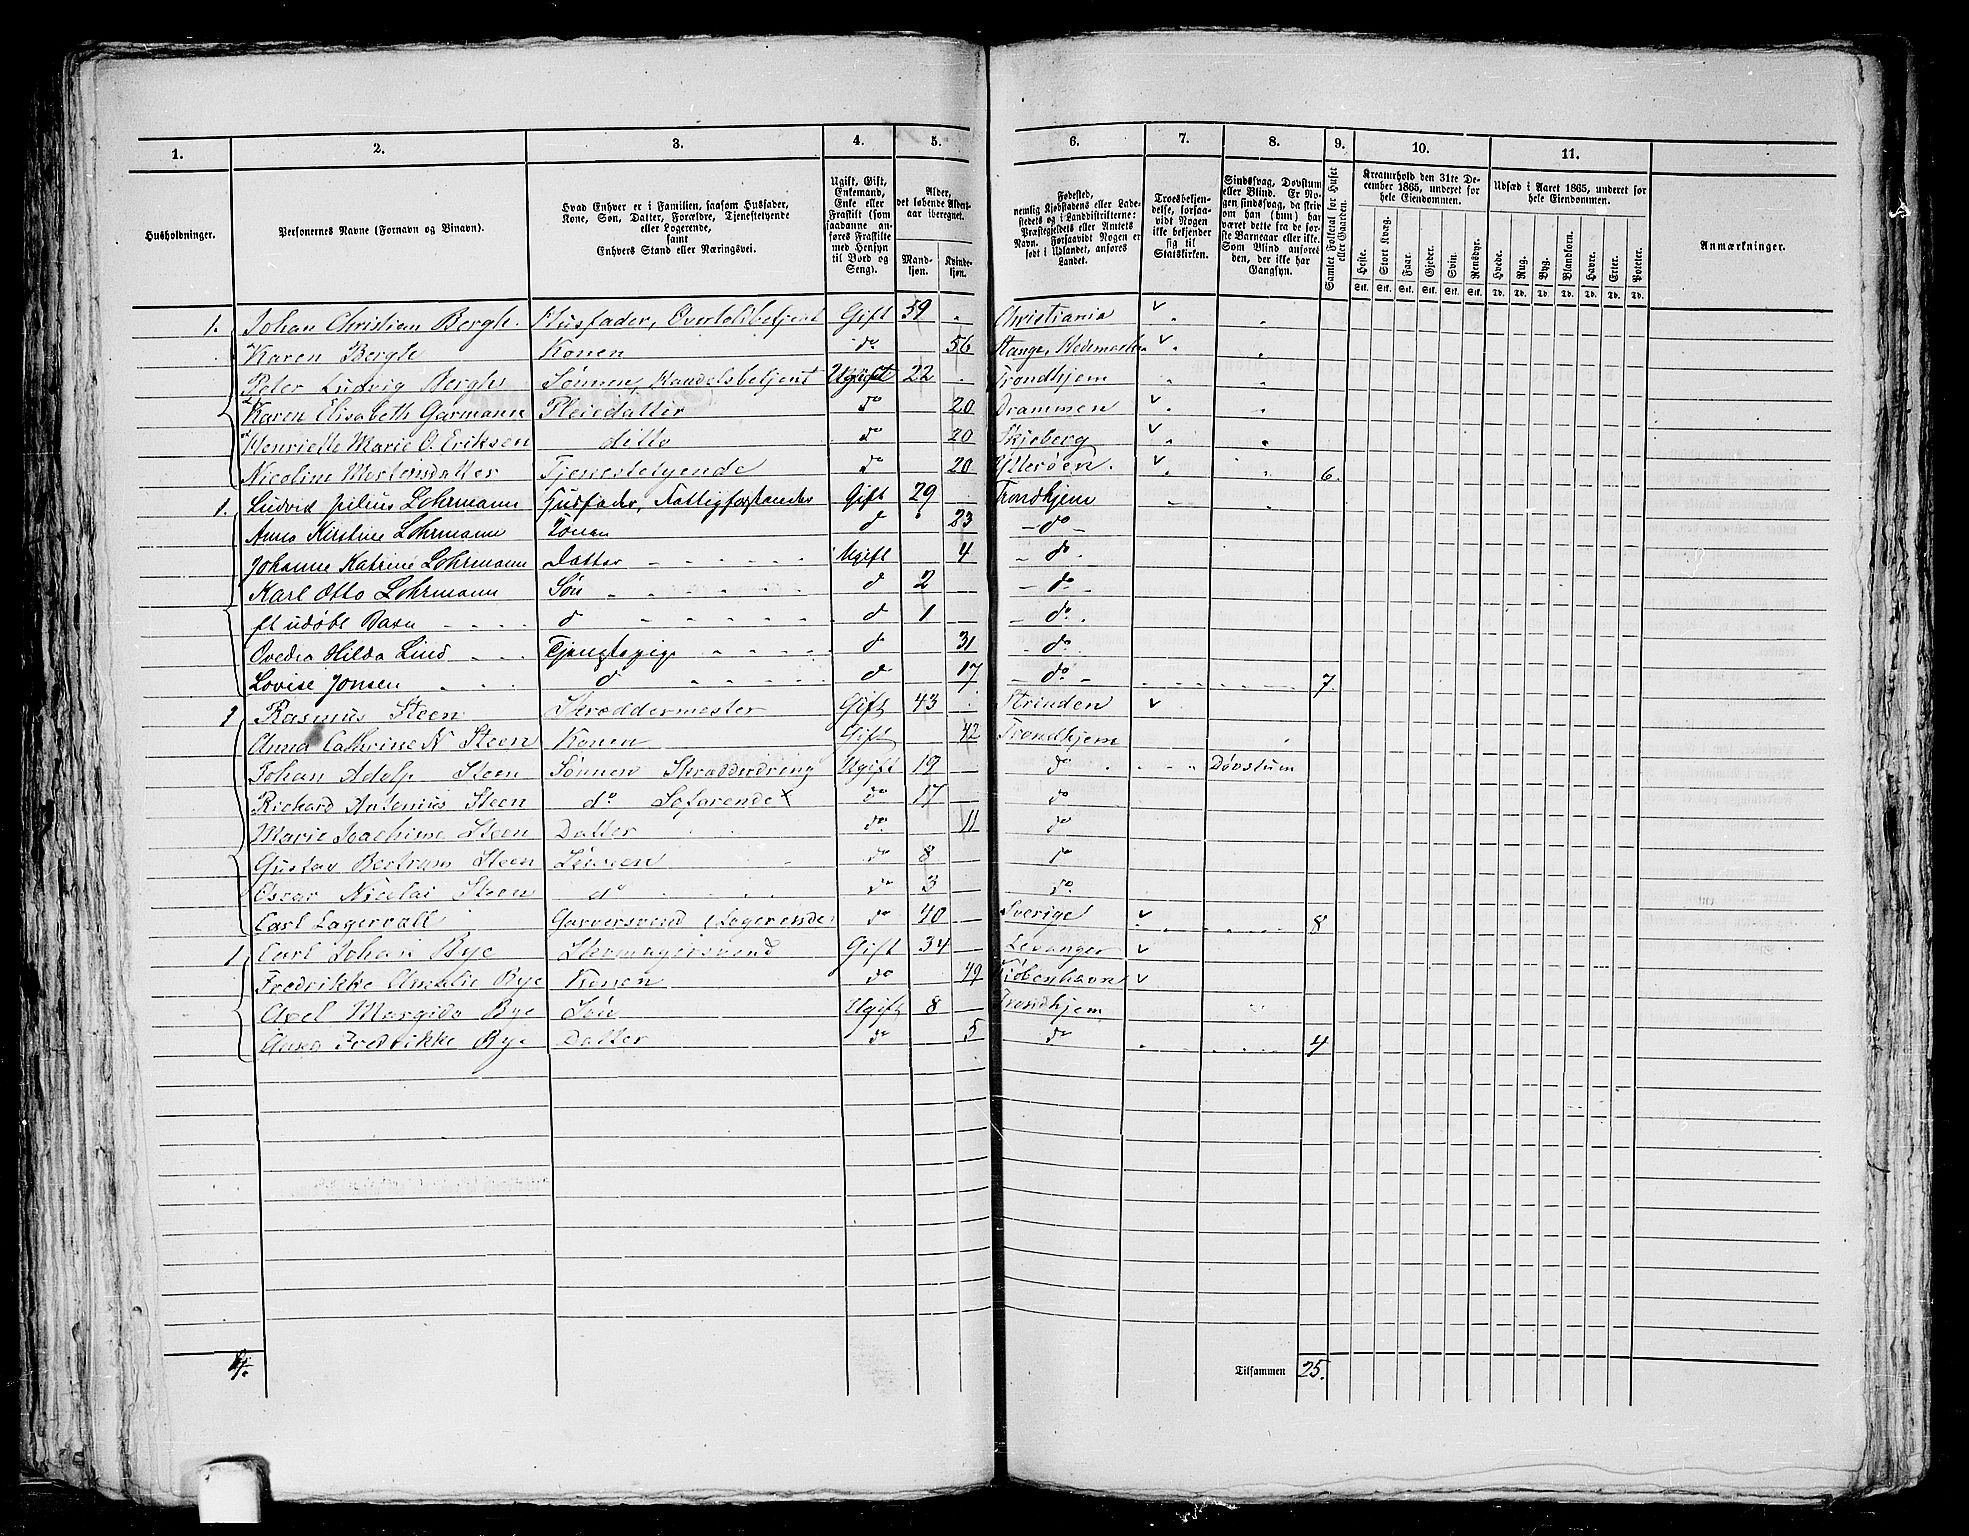 1. 2. 3. 4. 5. 6. 7. 8. 9. 10. 11.
Husholdninger.
Personernes Navne (Fornavn og Binavn).
Hvad Enhver er i Familien, saasom Husfader,
Kone, Søn, Datter, Forældre, Tjenestetyende
eller Logerende,
samt
Enhvers Stand eller Næringsvei.
Ugift, Gift,
Enkemand,
Enke eller
Fraskilt (som
saadanne an-
føres Fraskilte
med Hensyn
til Bord og
Seng).
Alder,
det løbende Alders-
aar iberegnet.
Mand-
kjøn.
Kvinde-
kjøn.
Fødested,
nemlig Kjøbstadens eller La-
destedets og i Landdistrikterne:
Præstegjeldets eller Amtets
Navn. Forsaavidt Nogen er
født i Udlandet, anføres
Landet.
Troesbekjen-
delse, forsaa-
vidt Nogen
ikke bekjender
sig til
Statskirken.
Sindssvag, Døvstum
eller Blind. Er No-
gen sindssvag, da skri-
ves om han (hun) har
været dette fra de før-
ste Barneaar eller ikke.
Som Blind anføres
den, der ikke har
Gangsyn.
Samlet Folketal for Huset
eller Gaarden.
Kreaturhold den 31te De-
cember 1865, underet for
hele Eiendommen.
Heste. Stort Kvæg. Faar. Gjeder. Svin. Rensdyr.
Stk. Stk. Stk. Stk. Stk. Stk.
Udsæd i Aaret 1865, underet for
hele Eiendommen.
Hvede. Rug. Byg. Blandkorn. Havre. Erter. Poteter.
Td. Td. Td. Td. Td. Td. Td.
Anmærkninger.
1. Johan Christian Bergh. Husfader, Overtoldbetjent Gift 59 Christiania
Karen Bergh Konen do 56 Stange, Hedemarken
Peter Ludvig Bergh Sønnen, Handelsbetjent Ugift 22 Trondhjem
Karen Elisabeth Garmann Pleiedatter do 20 Drammen
Henriette Marie O. Eriksen ditto do 20 Skjeberg
Nicoline Mortensdatter Tjenestetyende do 20 Ytterøen. 6.
1. Ludvid Julius Lohrmann Husfader, Fattigforstander Gift 29 Trondhjem
Anna Kirstine Lohrmann Konen d 23 do
Johanne Katrine Lohrmann Datter Ugift 4 do
Karl Otto Lohrmann Søn d 2 do
Et udøbt Barn d d 1 do
Ovedia Hilda Lind Tjenestepige d 31 do
Lovise Jonsen d d 17 do 7
Rasmus Steen Skræddermester Gift 43 Strinden
Anna Cathrine N Steen Konen Gift 42 Trondhjem
Johan Adolp Steen Sønnen Skrædderdreng Ugift 19 do Døvstum
Richard Antonius Steen do Søfarende do 17 do
Marie Joachime Steen Datter do 11 do
Gustav Bertram Steen Sønnen do 8 do
Oscar Nicolai Steen do do 3 do
Carl Lagervall Garversvend (Logerende) do 40 Sverige 8
1 Carl Johan Bye Skomagersvend Gift 34 Levanger
Fredrikke Amalie Bye Konen do 49 Kiøbenhavn
Axel Margido Bye Søn Ugift 8 Trondhjem
Anna Fredrikke Bye Datter do 5 do 4
4. Tilsammen 25.